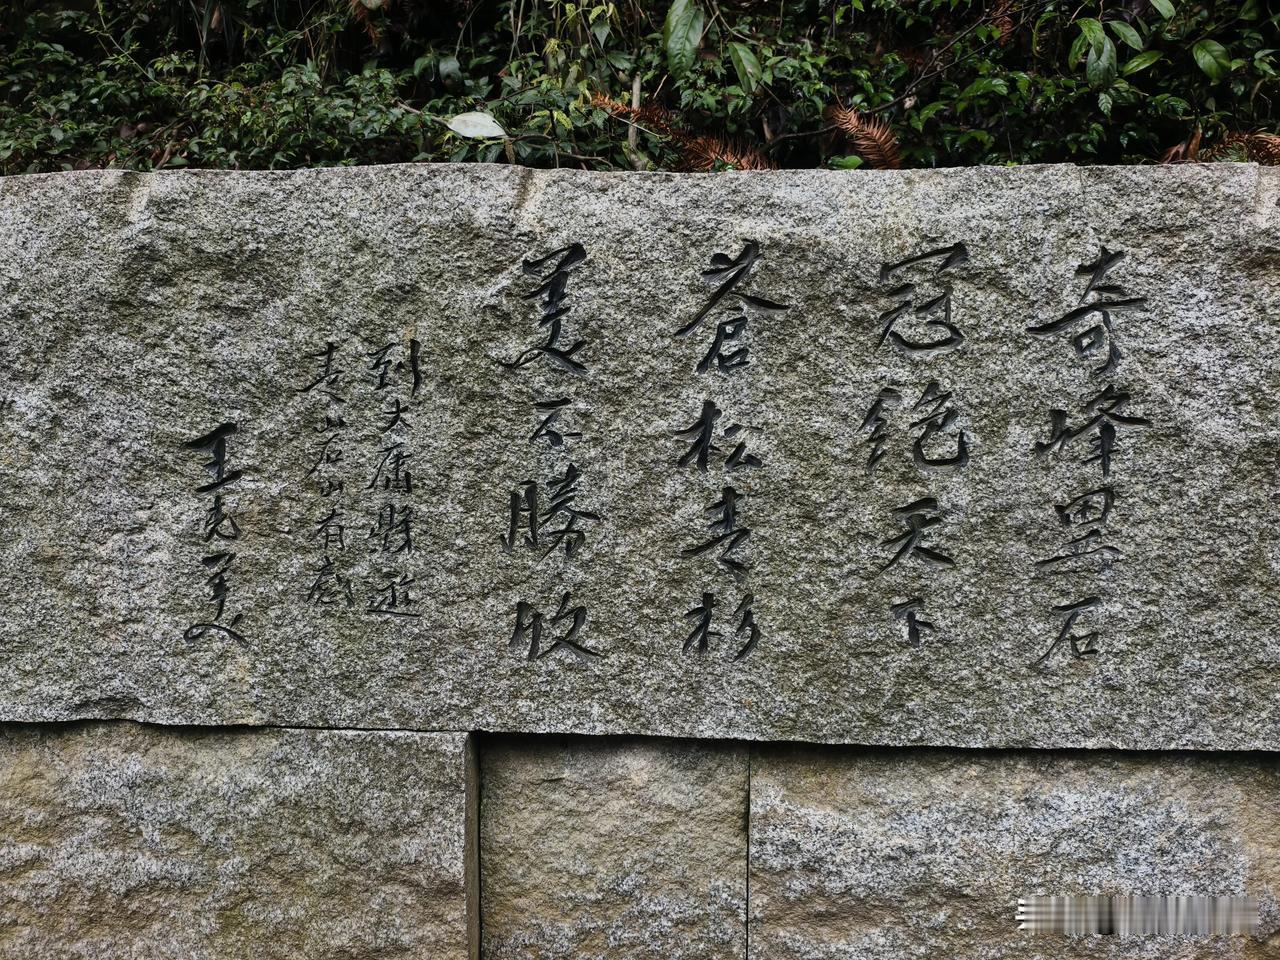 奇峰異石
冠絕天下
蒼松青杉
美不勝收
到大庸縣遊
青岩山有感
王光美